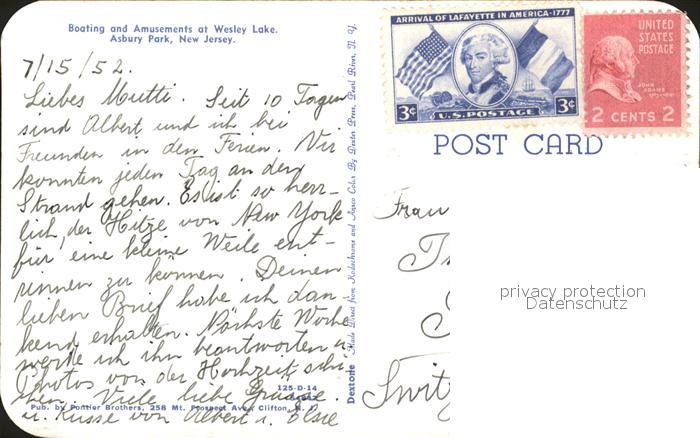 Boating and Amusements at Wesley Lake.
Asbury Park, New Jersey.
7/15/52.
Liebes Mutti. Seit 10 Tagen
sind Albert und ich bei
Freunden in den Ferien. Wir
konnten jeden Tag an den
Strand gehen. Es ist so herr-
lich, der Hitze von New York
für eine kleine Weile ent-
rinnen zu können. Deinen
lieben Brief habe ich dan
kend erhalten. Nächste Woche
werde ich ihn beantworten u.
Photos von der Hochzeit schi-
cken. Viele liebe Grüsse
u. Küsse von Albert u. Elsie
125-D-14
Pub. by Pontier Brothers, 258 Mt. Prospect Ave., Clifton, N. J.
Dextone Made Direct from Kodachrome and Ansco Color By Dexter Press, Pearl River, N. Y.
ARRIVAL OF LAFAYETTE IN AMERICA-1777
3¢ 3¢
U.S. POSTAGE
UNITED
STATES
POSTAGE
JOHN
ADAMS
2 CENTS 2
POST CARD
Frau
privacy protection
Datenschutz